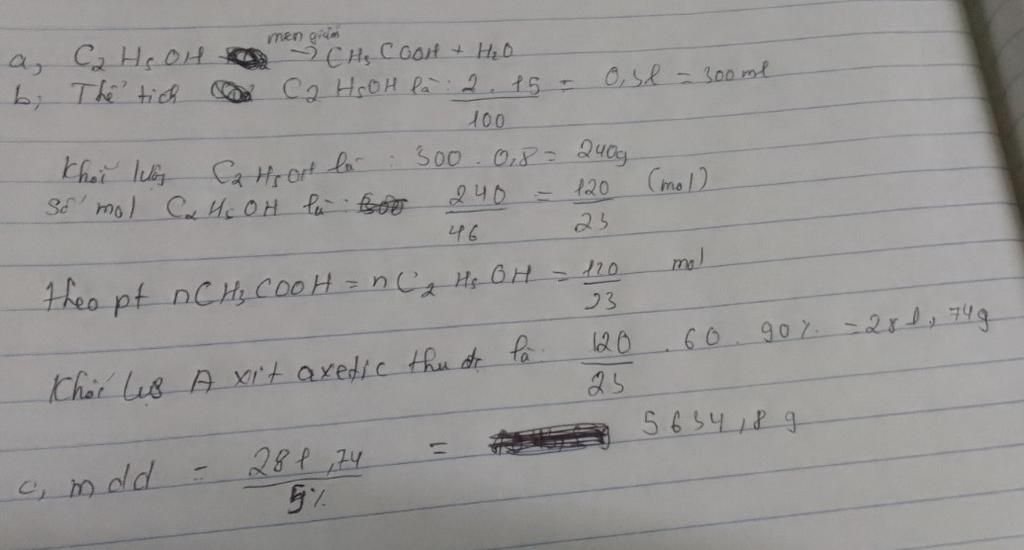 men giấm
a, C2 H5 OH → CH3 COOH + H2O
b, Thể tích C2 H5OH là: 2 . 15 / 100 = 0,3l = 300 ml
Khối lượng C2 H5OH là : 300 . 0,8 = 240g
Số mol C2 H5 OH là : 240 / 46 = 120 / 23 (mol)
theo pt nCH3 COOH = n C2 H5 OH = 120 / 23 mol
Khối lượg A xit axetic thu đc là 120 / 23 . 60 . 90% = 281,74g
c, m dd = 281,74 / 5% = 5634,8 g